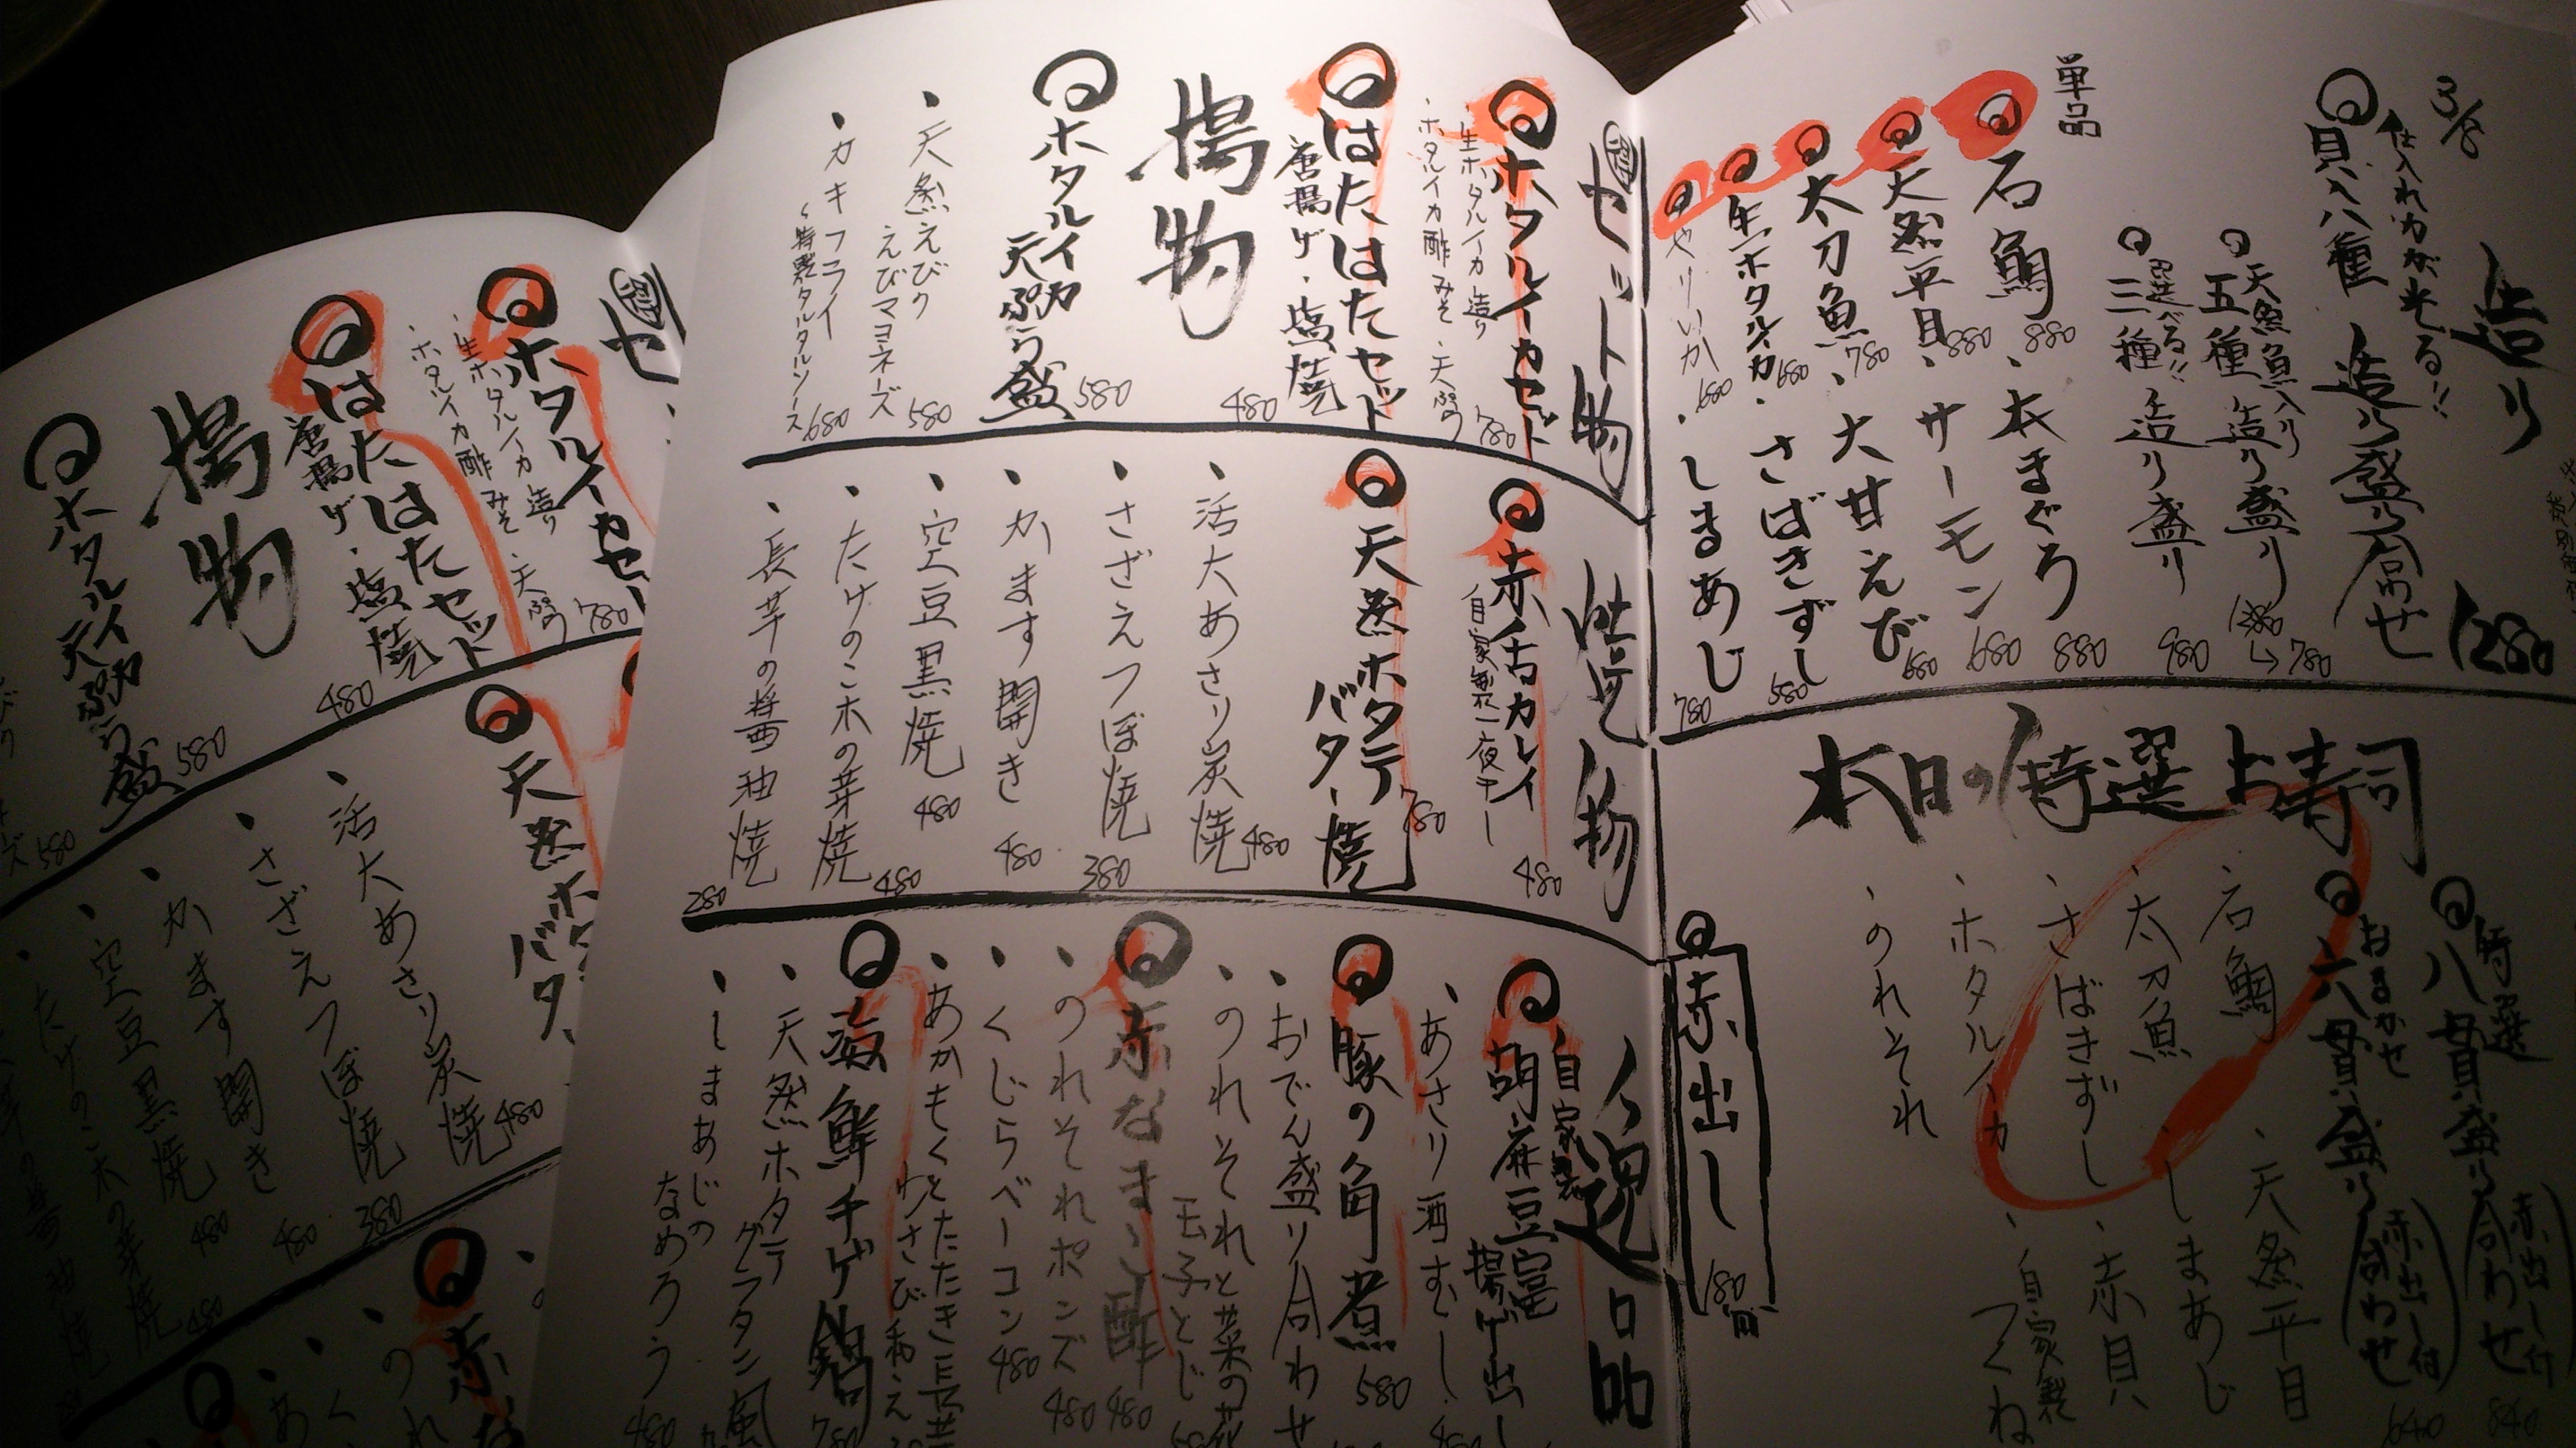 3/8
造り
仕入れ力が光る!!
貝入八種 造り盛り合せ 1280
天然魚入り
五種 造り盛り 1280→780
選べる!!
三種 造り盛り 980
単品
石鯛 880
・本まぐろ 880
天然平目 880
・サーモン 680
太刀魚 780
・大甘えび 680
生ホタルイカ 680
・さばきずし 580
やりいか 680
・しまあじ 780
本日の特選上寿司
特選
八貫盛り合わせ
赤出し付 840
おまかせ
六貫盛り合わせ
(赤出し付) 640
・石鯛
・天然平目
・太刀魚
・しまあじ
・さばきずし
・赤貝
・ホタルイカ
・自家製つくね
・のれそれ
赤出し 180円
得 セット物
ホタルイカセット
・生ホタルイカ造り
・ホタルイカ酢みそ ・天ぷら 780
はたはたセット
唐揚げ・塩焼 480
揚物
ホタルイカ
天ぷら盛 580
・天然えびの
えびマヨネーズ 580
・カキフライ
〜特製タルタルソース 680
焼物
赤舌カレイ
自家製一夜干し 480
天然ホタテ
バター焼 780
・活大あさり炭焼 480
・さざえつぼ焼 380
・かます開き 480
・空豆黒焼 480
・たけのこ木の芽焼 480
・長芋の醤油焼 280
一品
自家製
胡麻豆富
揚げ出し
・あさり酒むし
豚の角煮 580
・おでん盛り合わせ
・のれそれと菜の花
玉子とじ
赤なまこ酢 480
・のれそれポンズ 480
・くじらベーコン 480
・あかもくとたたき長芋
わさび和え
海鮮チゲ鍋 780
・天然ホタテ
グラタン風
・しまあじの
なめろう 480
得 セ
ホタルイカセ
・生ホタルイカ造り
・ホタルイカ酢みそ ・天ぷら 780
はたはたセット
唐揚げ・塩焼 480
揚物
ホタルイカ
天ぷら盛 580
580
天然ホ
バタ
・活大あさり炭焼 480
・さざえつぼ焼 380
・かます開き 480
・空豆黒焼 480
・たけのこ木の芽焼 480
赤な
・のれ
・く
・あ